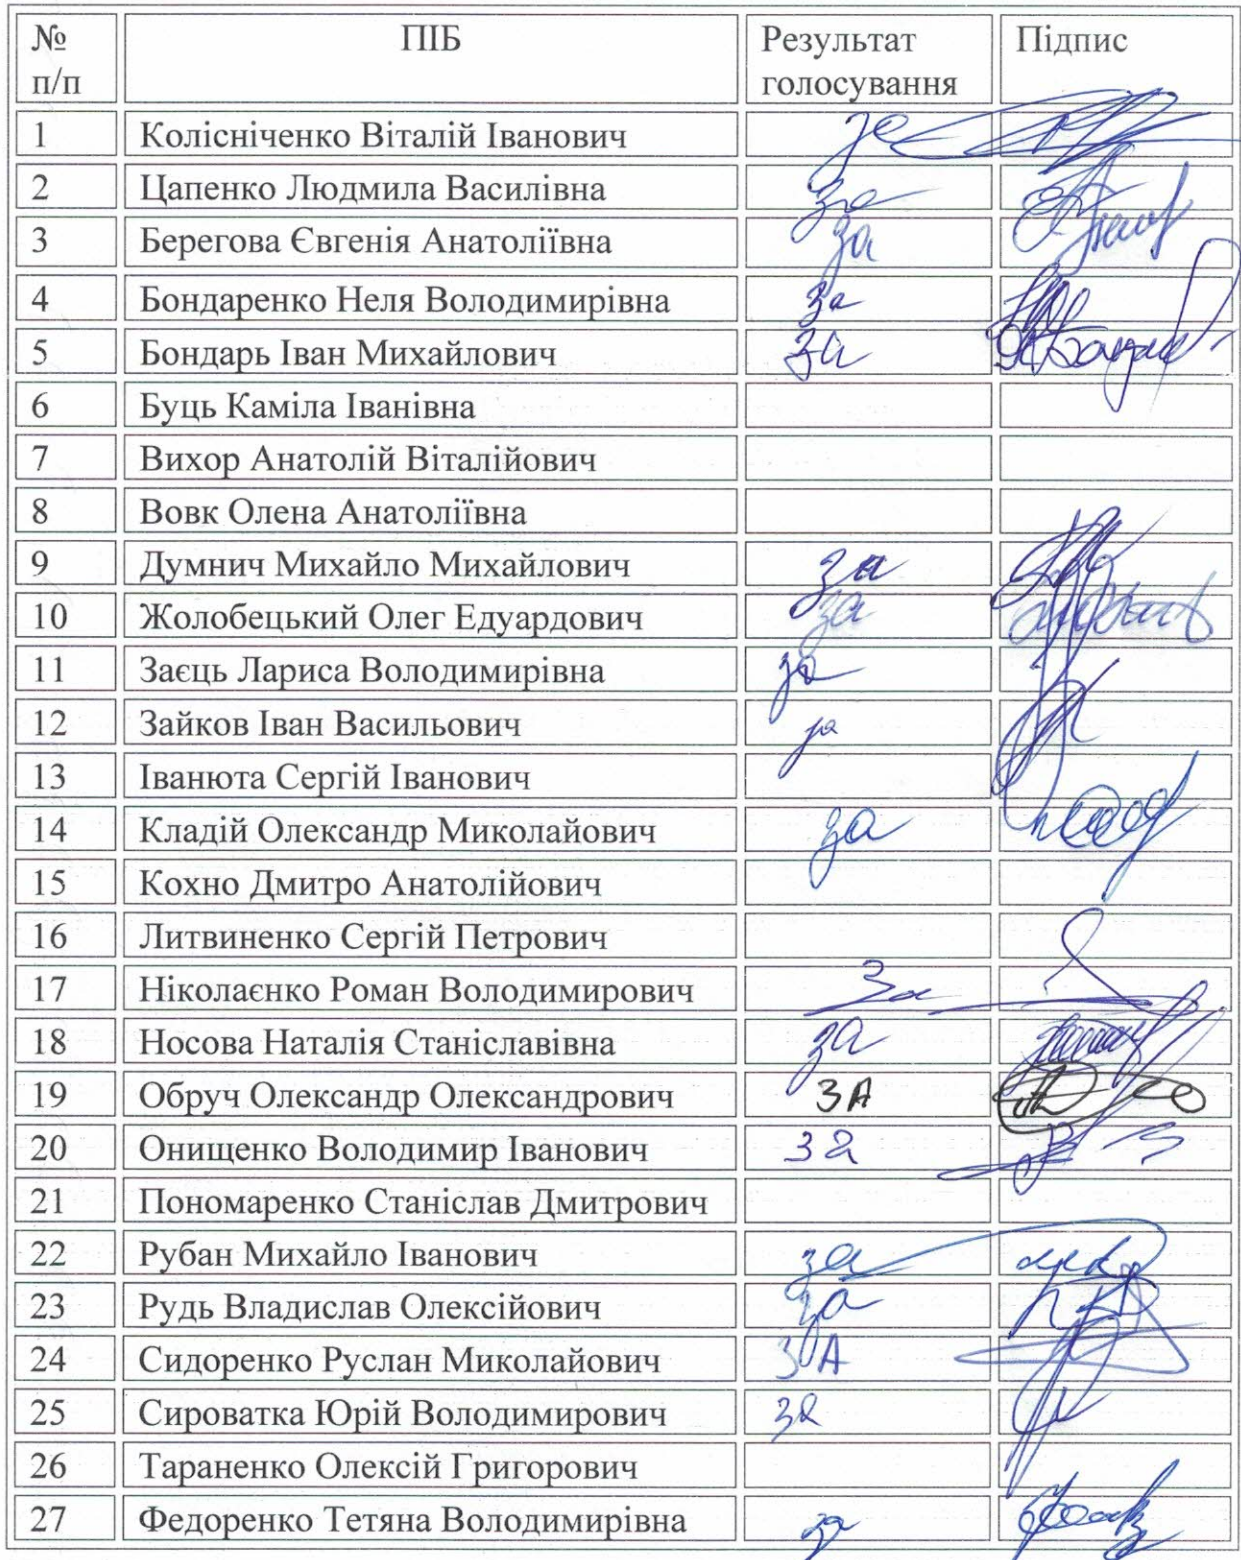 № п/п ПІБ Результат голосування Підпис
1 Колісніченко Віталій Іванович за
2 Цапенко Людмила Василівна за
3 Берегова Євгенія Анатоліївна за
4 Бондаренко Неля Володимирівна за
5 Бондарь Іван Михайлович за
6 Буць Каміла Іванівна
7 Вихор Анатолій Віталійович
8 Вовк Олена Анатоліївна
9 Думнич Михайло Михайлович за
10 Жолобецький Олег Едуардович за
11 Заєць Лариса Володимирівна за
12 Зайков Іван Васильович за
13 Іванюта Сергій Іванович
14 Кладій Олександр Миколайович за
15 Кохно Дмитро Анатолійович
16 Литвиненко Сергій Петрович
17 Ніколаєнко Роман Володимирович За
18 Носова Наталія Станіславівна за
19 Обруч Олександр Олександрович ЗА
20 Онищенко Володимир Іванович за
21 Пономаренко Станіслав Дмитрович
22 Рубан Михайло Іванович за
23 Рудь Владислав Олексійович за
24 Сидоренко Руслан Миколайович ЗА
25 Сироватка Юрій Володимирович за
26 Тараненко Олексій Григорович
27 Федоренко Тетяна Володимирівна за